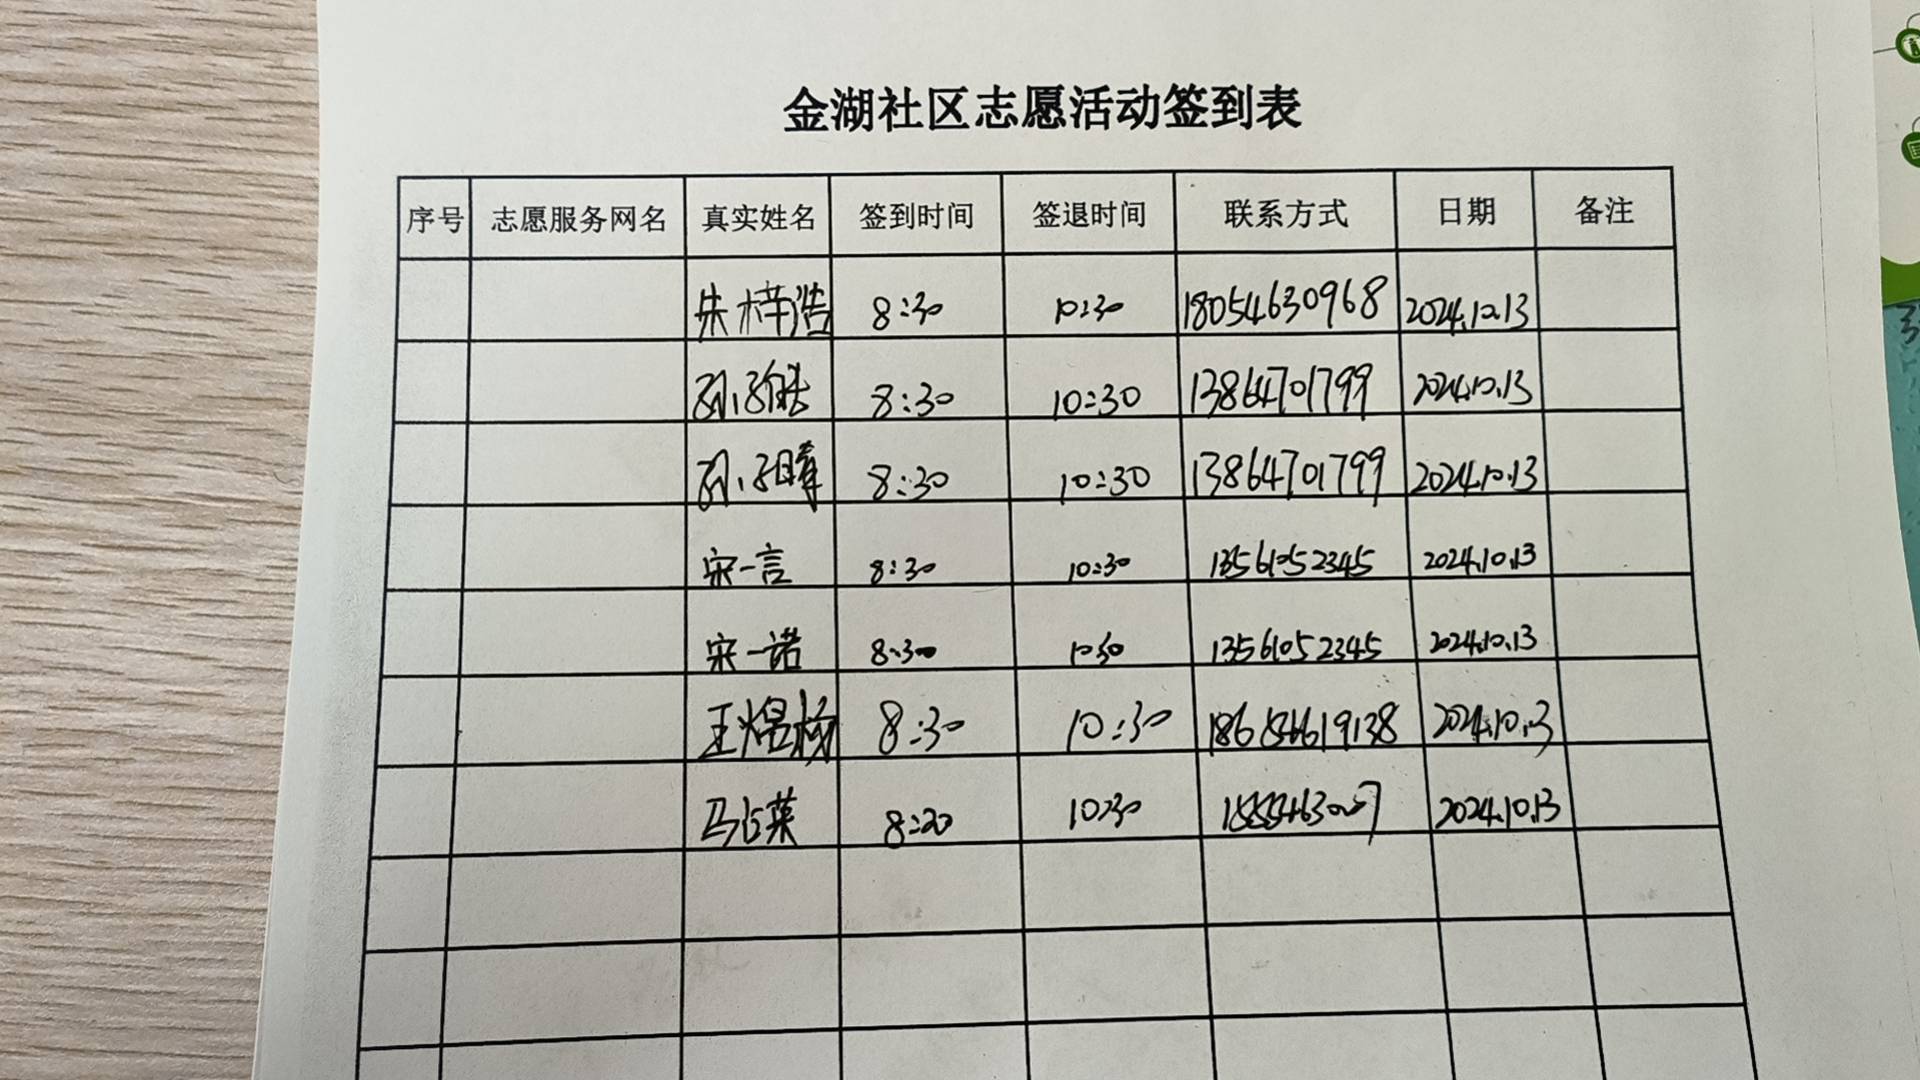 金湖社区志愿活动签到表
序号 志愿服务网名 真实姓名 签到时间 签退时间 联系方式 日期 备注
朱梓浩 8:30 10:30 18054630968 2024.10.13
8:30 10:30 13864701799 2024.10.13
8:30 10:30 13864701799 2024.10.13
宋一言 8:30 10:30 13561052345 2024.10.13
宋一诺 8:30 10:30 13561052345 2024.10.13
8:30 10:30 2024.10.13
8:20 10:30 2024.10.13